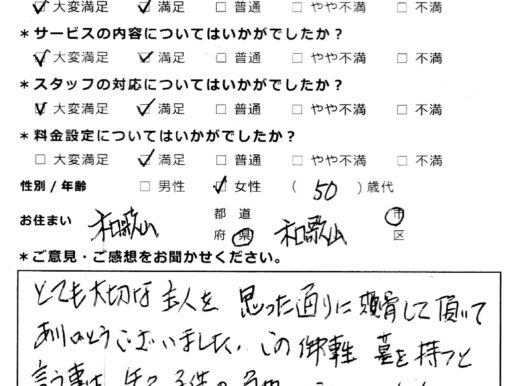 ☑ 大変満足 ☑ 満足 □ 普通 □ やや不満 □ 不満
＊サービスの内容についてはいかがでしたか？
☑ 大変満足 ☑ 満足 □ 普通 □ やや不満 □ 不満
＊スタッフの対応についてはいかがでしたか？
☑ 大変満足 ☑ 満足 □ 普通 □ やや不満 □ 不満
＊料金設定についてはいかがでしたか？
□ 大変満足 ☑ 満足 □ 普通 □ やや不満 □ 不満
性別 / 年齢 □ 男性 ☑ 女性 ( 50 ) 歳代
お住まい 和歌山 都 道 府 県 和歌山 市 区
＊ご意見・ご感想をお聞かせください。
とても大切な主人を 思った通りに 頭骨して頂いて
ありがとうございました。この 墓を持つと
言う事は